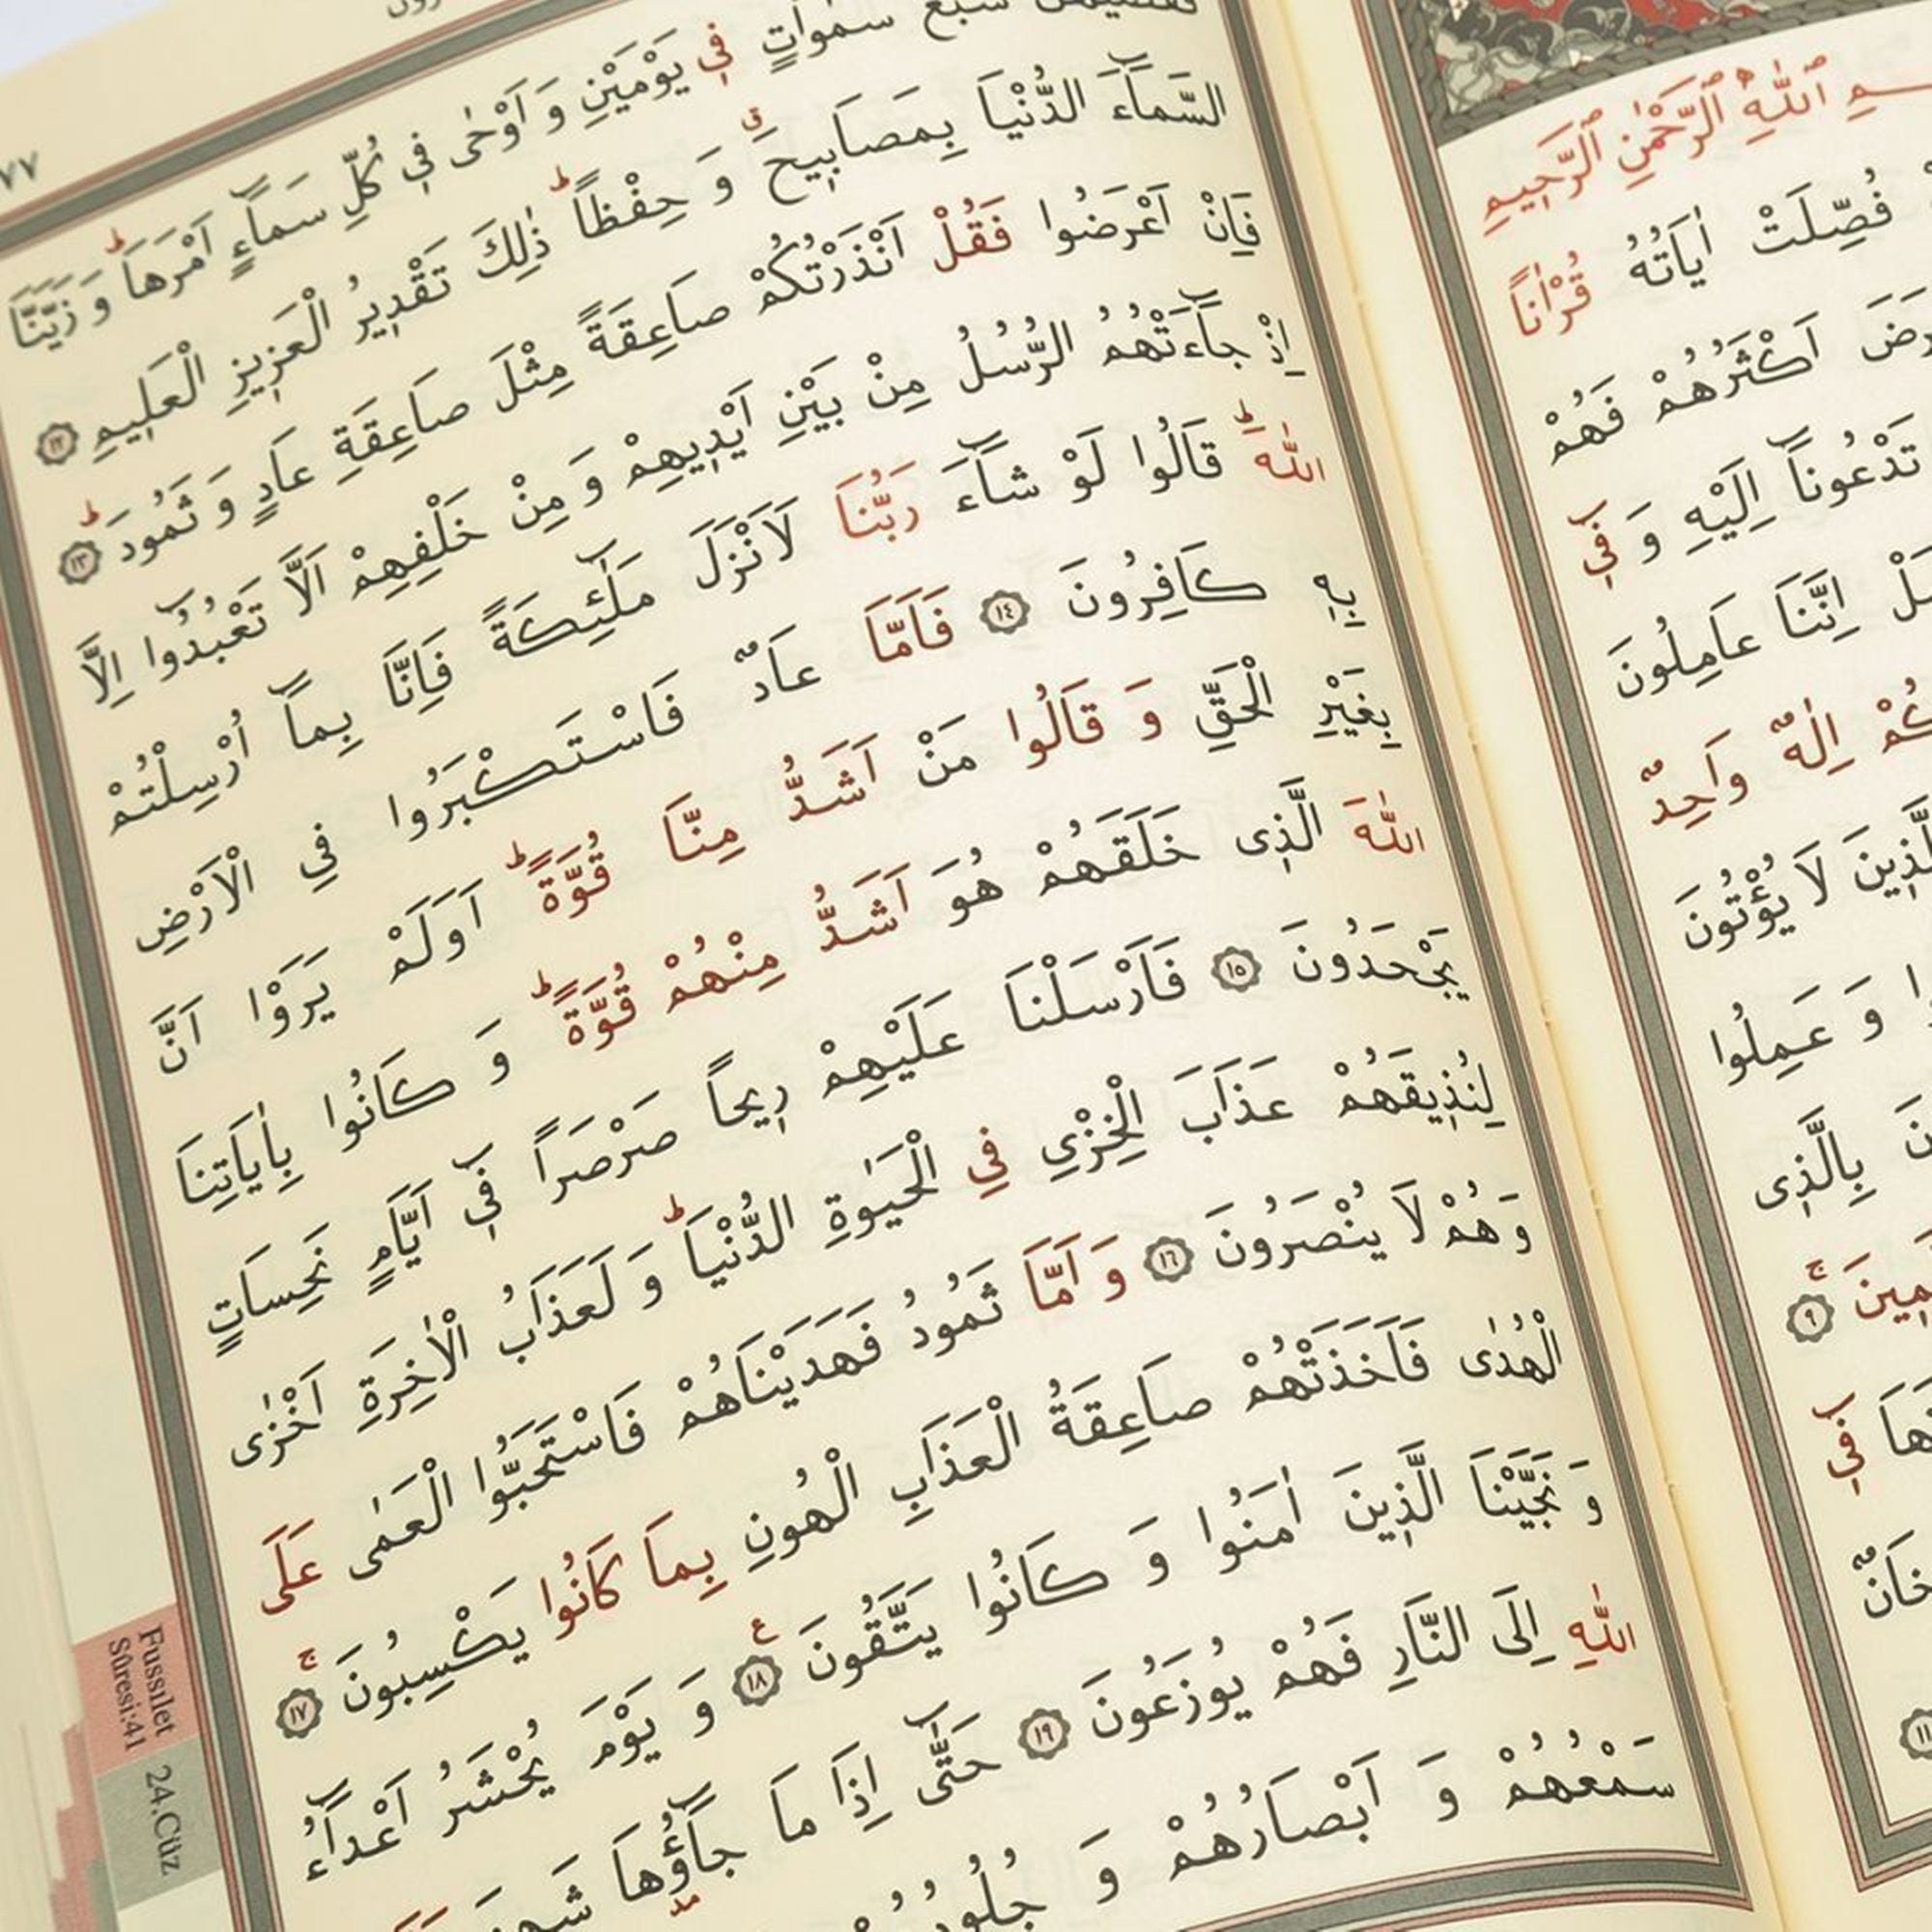 ٧٧
فَقَضٰيهُنَّ سَبْعَ سَمٰوَاتٍ فٖي يَوْمَيْنِ وَ اَوْحٰى فٖي كُلِّ سَمَاۤءٍ اَمْرَهَاؕ وَ زَيَّنَّا
السَّمَاۤءَ الدُّنْيَا بِمَصَابٖيحَۗ وَ حِفْظاًؕ ذٰلِكَ تَقْدٖيرُ الْعَزٖيزِ الْعَلٖيمِ ١٢
فَاِنْ اَعْرَضُوا فَقُلْ اَنْذَرْتُكُمْ صَاعِقَةً مِثْلَ صَاعِقَةِ عَادٍ وَ ثَمُودَؕ ١٣
اِذْ جَاۤءَتْهُمُ الرُّسُلُ مِنْ بَيْنِ اَيْدٖيهِمْ وَ مِنْ خَلْفِهِمْ اَلَّا تَعْبُدُوۤا اِلَّا
اللّٰهَؕ قَالُوا لَوْ شَاۤءَ رَبُّنَا لَاَنْزَلَ مَلٰۤئِكَةً فَاِنَّا بِمَاۤ اُرْسِلْتُمْ
بِهٖ كَافِرُونَ ١٤ فَاَمَّا عَادٌ فَاسْتَكْبَرُوا فِي الْاَرْضِ
بِغَيْرِ الْحَقِّ وَ قَالُوا مَنْ اَشَدُّ مِنَّا قُوَّةًؕ اَوَلَمْ يَرَوْا اَنَّ
اللّٰهَ الَّذٖى خَلَقَهُمْ هُوَ اَشَدُّ مِنْهُمْ قُوَّةًؕ وَ كَانُوا بِاٰيَاتِنَا
يَجْحَدُونَ ١٥ فَاَرْسَلْنَا عَلَيْهِمْ رٖيحاً صَرْصَراً فٖۤي اَيَّامٍ نَحِسَاتٍ
لِنُذٖيقَهُمْ عَذَابَ الْخِزْىِ فِي الْحَيٰوةِ الدُّنْيَاؕ وَ لَعَذَابُ الْاٰخِرَةِ اَخْزٰى
وَ هُمْ لَا يُنْصَرُونَ ١٦ وَ اَمَّا ثَمُودُ فَهَدَيْنَاهُمْ فَاسْتَحَبُّوا الْعَمٰى عَلَى
الْهُدٰى فَاَخَذَتْهُمْ صَاعِقَةُ الْعَذَابِ الْهُونِ بِمَا كَانُوا يَكْسِبُونَۚ ١٧
وَ نَجَّيْنَا الَّذٖينَ اٰمَنُوا وَ كَانُوا يَتَّقُونَ ع ١٨ وَ يَوْمَ يُحْشَرُ اَعْدَاۤءُ
اللّٰهِ اِلَى النَّارِ فَهُمْ يُوزَعُونَ ١٩ حَتّٰۤى اِذَا مَا جَاۤؤُهَا
سَمْعُهُمْ وَ اَبْصَارُهُمْ وَ
Fussılet
Sûresi:41
24.Cüz
اللّٰهِ الرَّحْمٰنِ الرَّحٖيمِ
فُصِّلَتْ اٰيَاتُهُ قُرْاٰناً
اَكْثَرُهُمْ فَهُمْ
تَدْعُونَاۤ اِلَيْهِ وَ فٖۤي
اِنَّنَا عَامِلُونَ
اِلٰهٌ وَاحِدٌ
لَا يُؤْتُونَ
وَ عَمِلُوا
بِالَّذٖى
٩
فٖۤي
١١